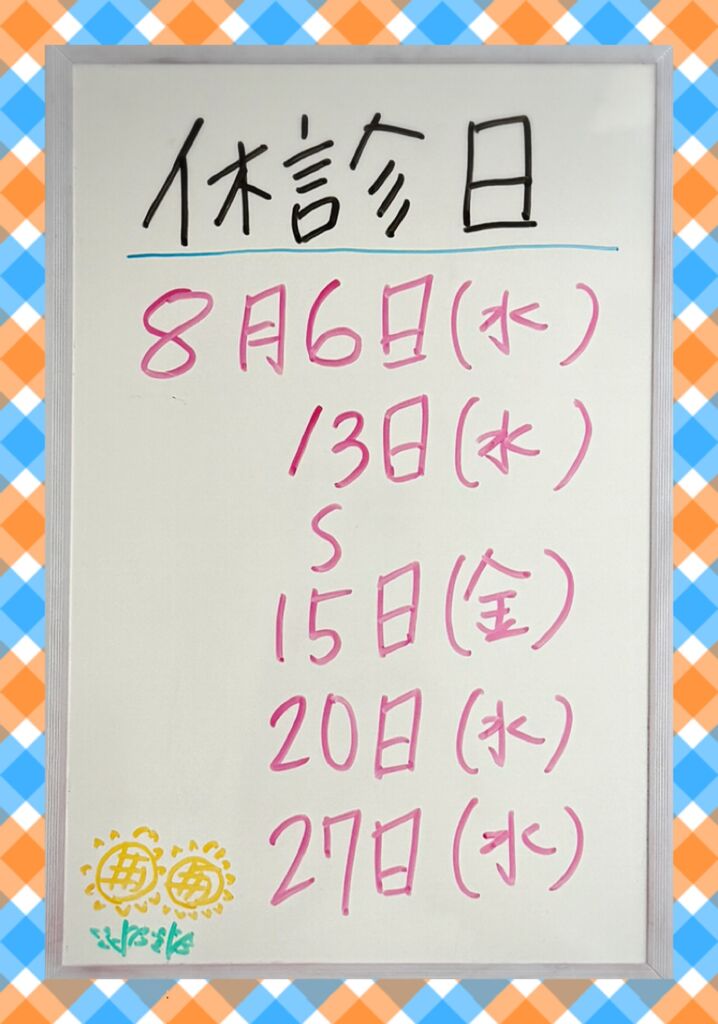 休診日
8月6日(水)
13日(水)
S
15日(金)
20日(水)
27日(水)